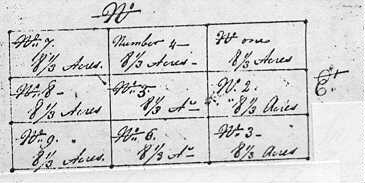 No
No 7.
8 1/3 Acres.
Number 4-
8 1/3 Acres-
No one
8 1/3 Acres
No 8-
8 1/3 Acres.
No 5-
8 1/3 Ars
No 2.
8 1/3 Acres
No 9.
8 1/3 Acres.
No 6.
8 1/3 Ars
No 3-
8 1/3 Acres